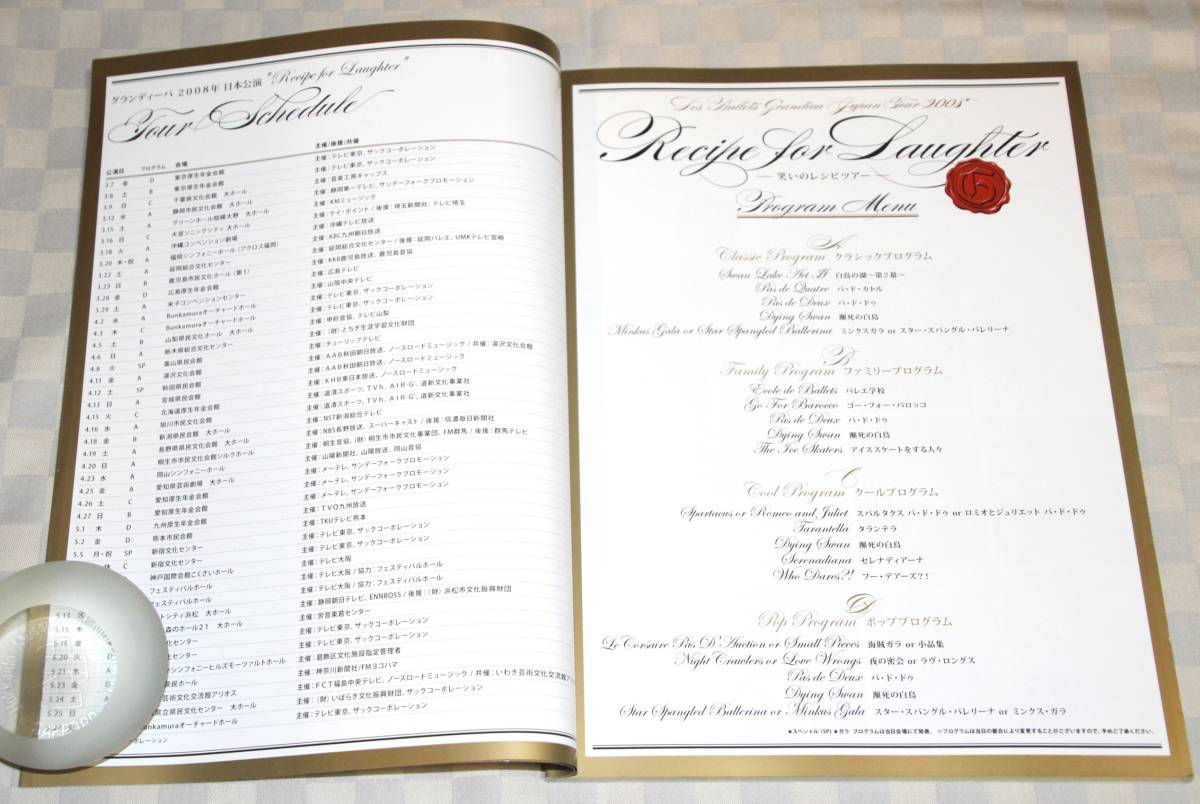 グランディーバ 2008年 日本公演 "Recipe for Laughter"
Tour Schedule
公演日 プログラム 会場 主催/後援/共催
3.7 金 D 東京厚生年金会館 主催：テレビ東京、ザックコーポレーション
3.8 土 B 東京厚生年金会館 主催：テレビ東京、ザックコーポレーション
3.9 日 C 千葉県文化会館 大ホール 主催：音楽工房キャップス
3.12 水 A 静岡市民文化会館 大ホール 主催：静岡第一テレビ、サンデーフォークプロモーション
3.15 土 A グリーンホール相模大野 大ホール 主催：KMミュージック
3.16 日 C 大宮ソニックシティ 大ホール 主催：ケイ・ポイント / 後援：埼玉新聞社、テレビ埼玉
3.18 火 A 沖縄コンベンション劇場 主催：沖縄テレビ放送
3.20 木・祝 A 福岡シンフォニーホール（アクロス福岡） 主催：KBC九州朝日放送
3.22 土 A 延岡総合文化センター 主催：延岡総合文化センター / 後援：延岡バレエ、UMKテレビ宮崎
3.23 日 B 鹿児島市民文化ホール（第1） 主催：KKB鹿児島放送、鹿児島音協
3.28 金 D 広島厚生年金会館 主催：広島テレビ
3.29 土 A 米子コンベンションセンター 主催：山陰中央テレビ
4.2 水 A Bunkamuraオーチャードホール 主催：テレビ東京、ザックコーポレーション
4.3 木 C Bunkamuraオーチャードホール 主催：テレビ東京、ザックコーポレーション
4.5 土 B 山梨県民文化ホール 大ホール 主催：甲府音協、テレビ山梨
4.6 日 A 栃木県総合文化センター 主催：（財）とちぎ生涯学習文化財団
4.8 火 SP 富山県民会館 主催：チューリップテレビ
4.11 金 A 湯沢文化会館 主催：AAB秋田朝日放送、ノースロードミュージック / 共催：湯沢文化会館
4.12 土 SP 秋田県民会館 主催：AAB秋田朝日放送、ノースロードミュージック
4.13 日 A 宮城県民会館 主催：KHB東日本放送、ノースロードミュージック
4.15 火 C 北海道厚生年金会館 主催：道清スポーツ、TVh、AIR-G'、道新文化事業社
4.16 水 A 旭川市民文化会館 主催：道清スポーツ、TVh、AIR-G'、道新文化事業社
4.18 金 B 新潟県民会館 大ホール 主催：NST新潟総合テレビ
4.19 土 A 長野県県民文化会館 大ホール 主催：NBS長野放送、スーパーキャスト / 後援：信濃毎日新聞社
4.20 日 A 桐生市市民文化会館シルクホール 主催：桐生音協、（財）桐生市市民文化事業団、FM群馬 / 後援：群馬テレビ
4.23 水 A 岡山シンフォニーホール 主催：山陽新聞社、山陽放送、岡山音協
4.25 金 A 愛知県芸術劇場 大ホール 主催：メ〜テレ、サンデーフォークプロモーション
4.26 土 C 愛知厚生年金会館 主催：メ〜テレ、サンデーフォークプロモーション
4.27 日 B 愛知厚生年金会館 主催：メ〜テレ、サンデーフォークプロモーション
5.1 木 D 九州厚生年金会館 主催：TVQ九州放送
5.2 金 D 熊本市民会館 主催：TKUテレビ熊本
5.5 月・祝 SP 新宿文化センター 主催：テレビ東京、ザックコーポレーション
休 C 新宿文化センター 主催：テレビ東京、ザックコーポレーション
神戸国際会館こくさいホール 主催：テレビ大阪
フェスティバルホール 主催：テレビ大阪 / 協力：フェスティバルホール
フェスティバルホール 主催：テレビ大阪 / 協力：フェスティバルホール
5.13 火 トシティ浜松 大ホール 主催：静岡朝日テレビ、ENNBOSS / 後援：（財）浜松市文化振興団
5.15 木 森のホール21 大ホール 主催：労音東葛センター
5.16 金 化センター 主催：テレビ東京、ザックコーポレーション
5.20 火 D 化センター 主催：テレビ東京、ザックコーポレーション
5.21 シンフォニーヒルズモーツァルトホール 主催：葛飾区文化施設指定管理者
5.23 金 民ホール 主催：神奈川新聞社/FMヨコハマ
5.24 土 芸術文化交流館アリオス 主催：FCT福島中央テレビ、ノースロードミュージック / 共催：いわき芸術文化交流館ア
5.25 日 県立県民文化センター 大ホール 主催：（財）いばらき文化振興財団、ザックコーポレーション
unkamuraオーチャードホール 主催：テレビ東京、ザックコーポレーション
ーポレーション
Les Ballets Grandiva Japan Tour 2008
Recipe for Laughter
― 笑いのレシピツアー ―
G
Program Menu
A
Classic Program クラシックプログラム
Swan Lake Act II 白鳥の湖〜第2幕〜
Pas de Quatre パ・ド・カトル
Pas de Deux パ・ド・ドゥ
Dying Swan 瀕死の白鳥
Minkus Gala or Star Spangled Ballerina ミンクスガラ or スター・スパングル・バレリーナ
B
Family Program ファミリープログラム
Ecole de Ballets バレエ学校
Go For Barocco ゴー・フォー・バロッコ
Pas de Deux パ・ド・ドゥ
Dying Swan 瀕死の白鳥
The Ice Skaters アイススケートをする人々
C
Cool Program クールプログラム
Spartacus or Romeo and Juliet スパルタクス パ・ド・ドゥ or ロミオとジュリエット パ・ド・ドゥ
Tarantella タランテラ
Dying Swan 瀕死の白鳥
Serenadiana セレナディアーナ
Who Dares?! フー・デアーズ?!
D
Pop Program ポッププログラム
Le Corsaire Pas D'Auction or Small Pieces 海賊ガラ or 小品集
Night Crawlers or Love Wrongs 夜の密会 or ラヴ・ロングス
Pas de Deux パ・ド・ドゥ
Dying Swan 瀕死の白鳥
Star Spangled Ballerina or Minkus Gala スター・スパングル・バレリーナ or ミンクス・ガラ
★スペシャル（SP）★ガラ プログラムは当日会場にて発表。 ※プログラムは当日の都合により変更することがございますので、予めご了承ください。